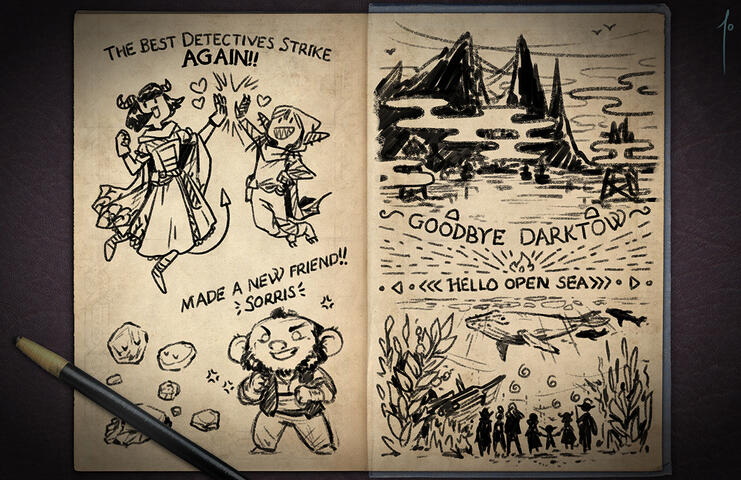 THE BEST DETECTIVES STRIKE
AGAIN!!
MADE A NEW FRIEND!!
SORRIS
GOODBYE DARKTÔW
<<< HELLO OPEN SEA >>>